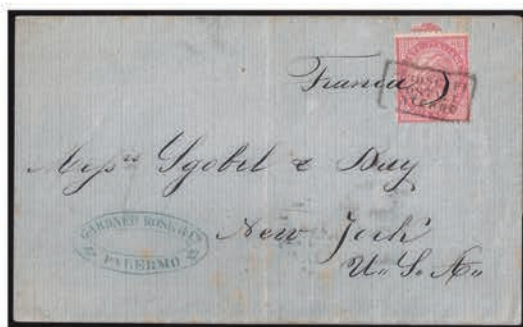 Franca
Mess^rs Sgobel & Day
New York
U. S. A.
GARDNER ROSE & Co
PALERMO